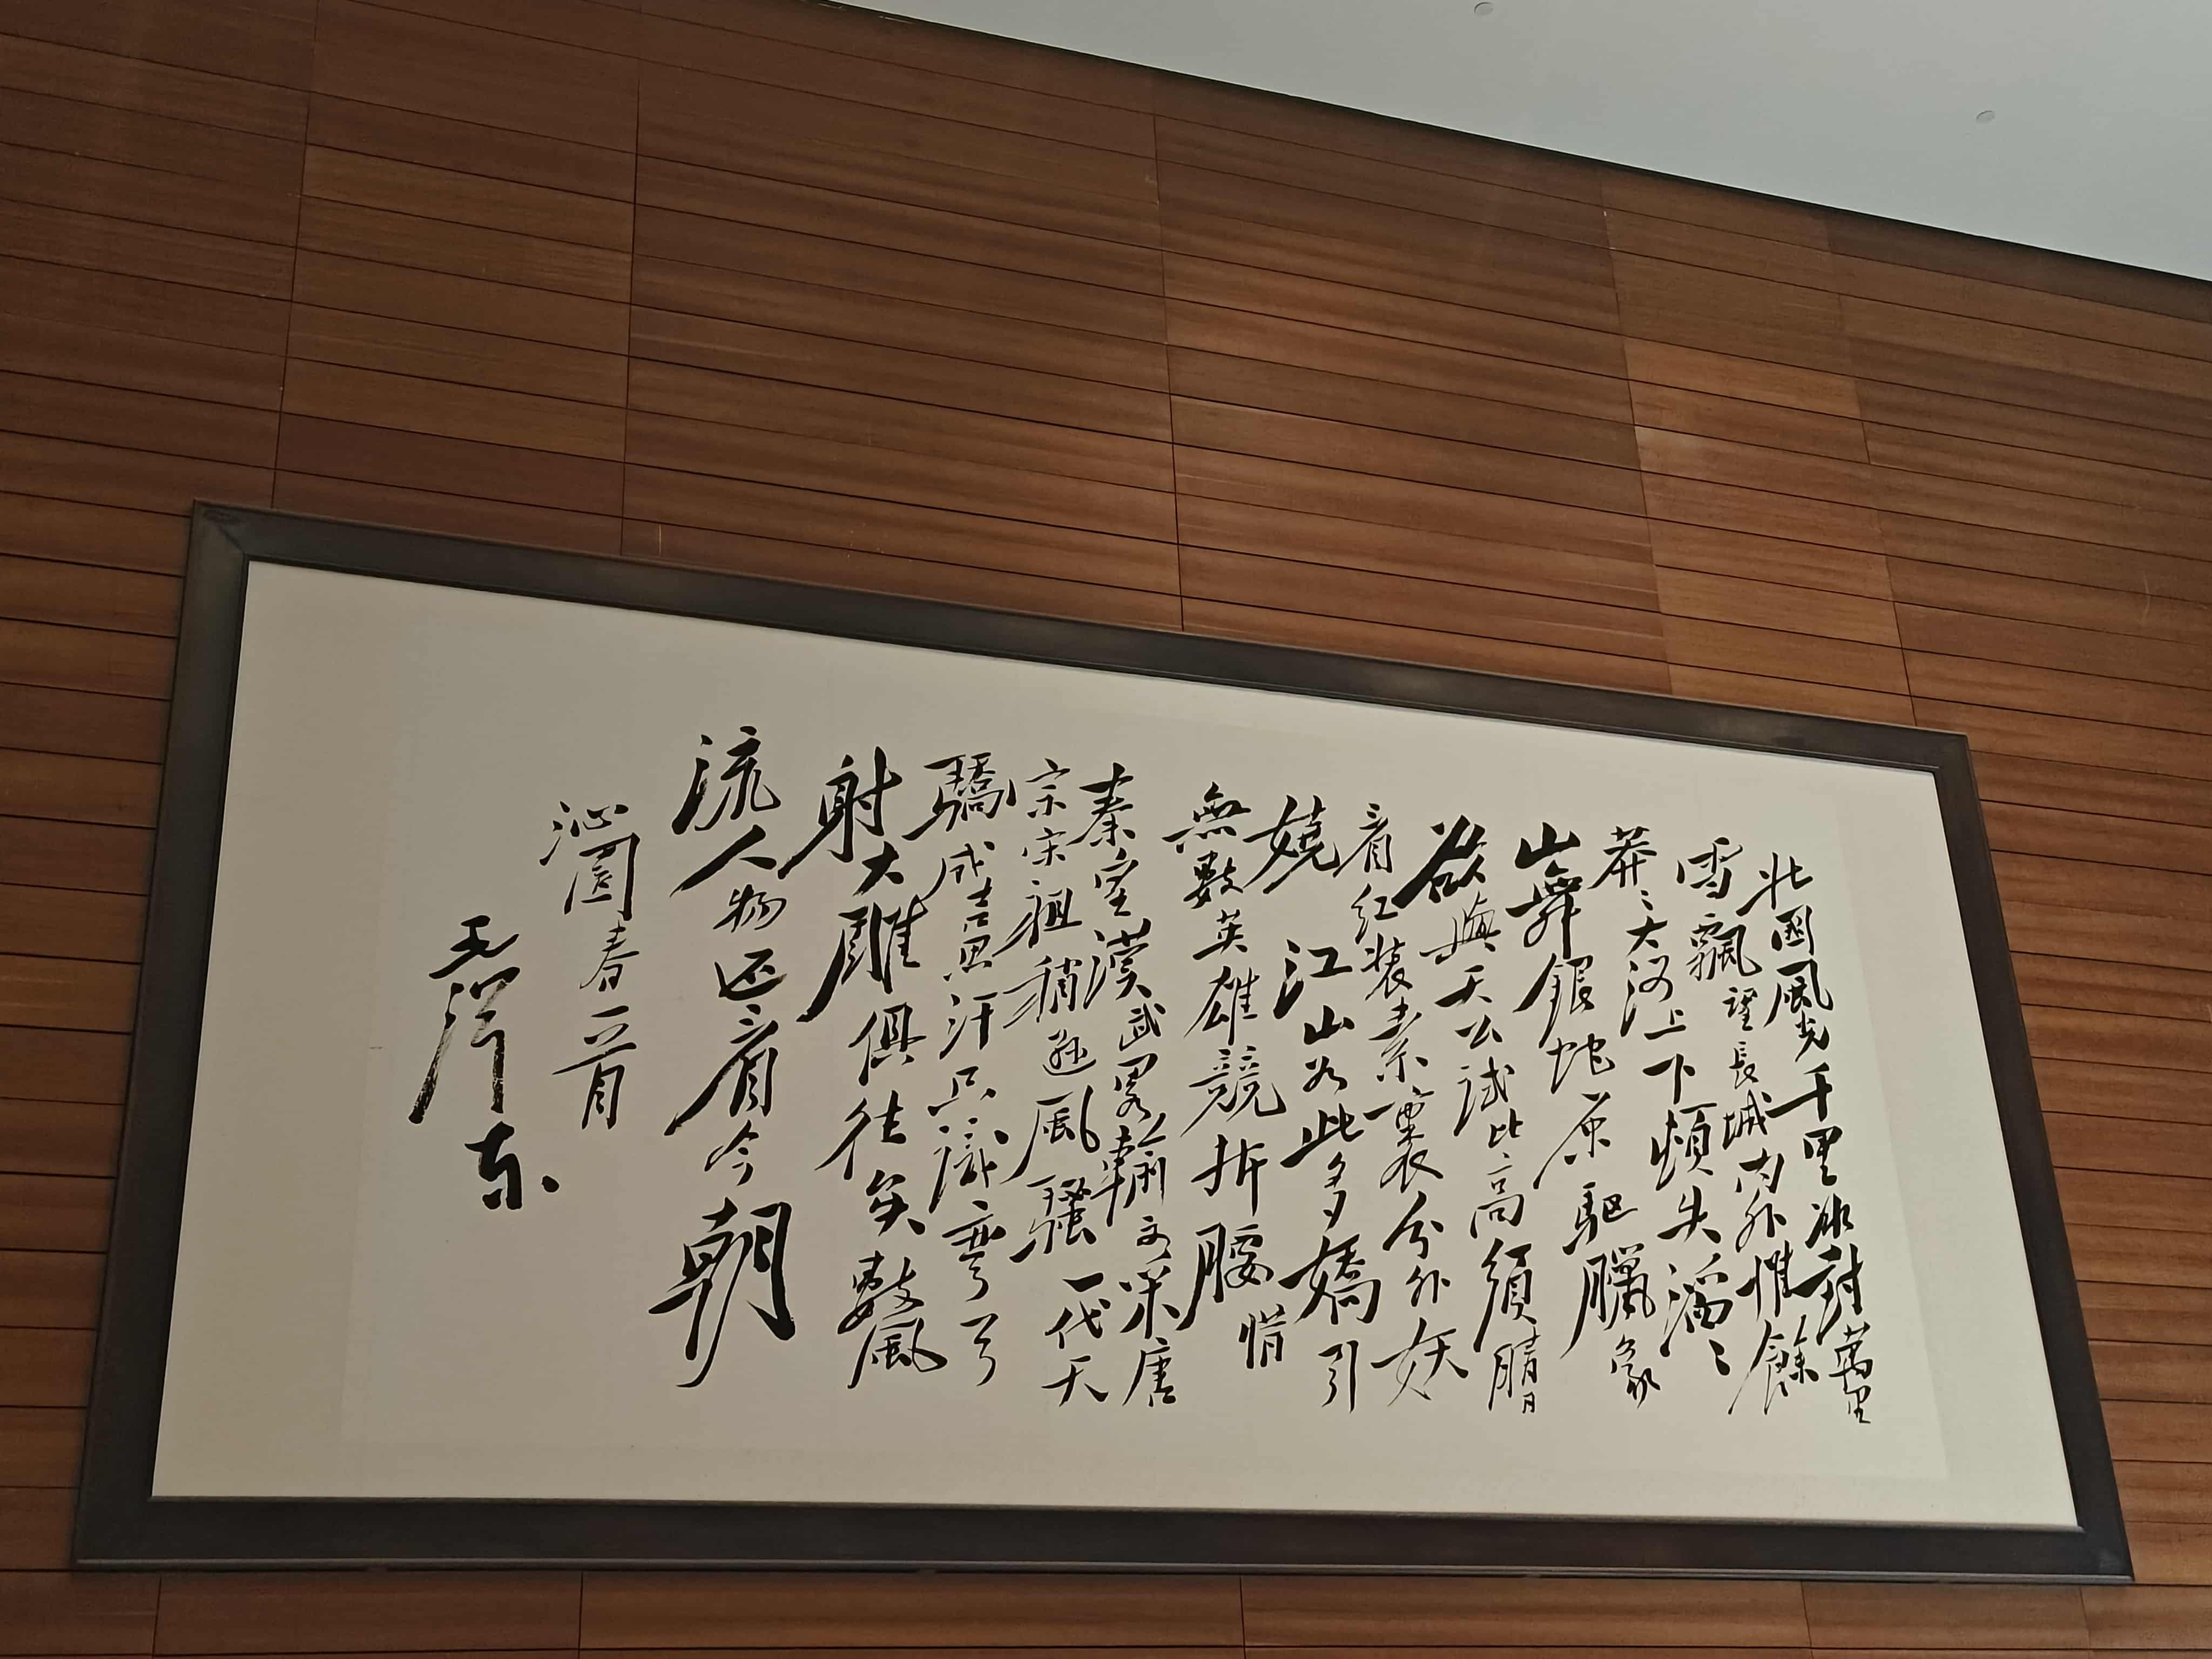 北國風光千里冰封萬里
雪飄望長城內外惟餘
莽々大河上下頓失滔々
山舞銀蛇原驅臘象
欲與天公試比高須晴日
看紅裝素裹分外妖
嬈江山如此多嬌引
無數英雄競折腰惜
秦皇漢武畧輸文采唐
宗宋祖稍遜風騷一代天
驕成吉思汗只識彎弓
射大雕俱往矣數風
流人物还看今朝
沁園春一首
毛澤东